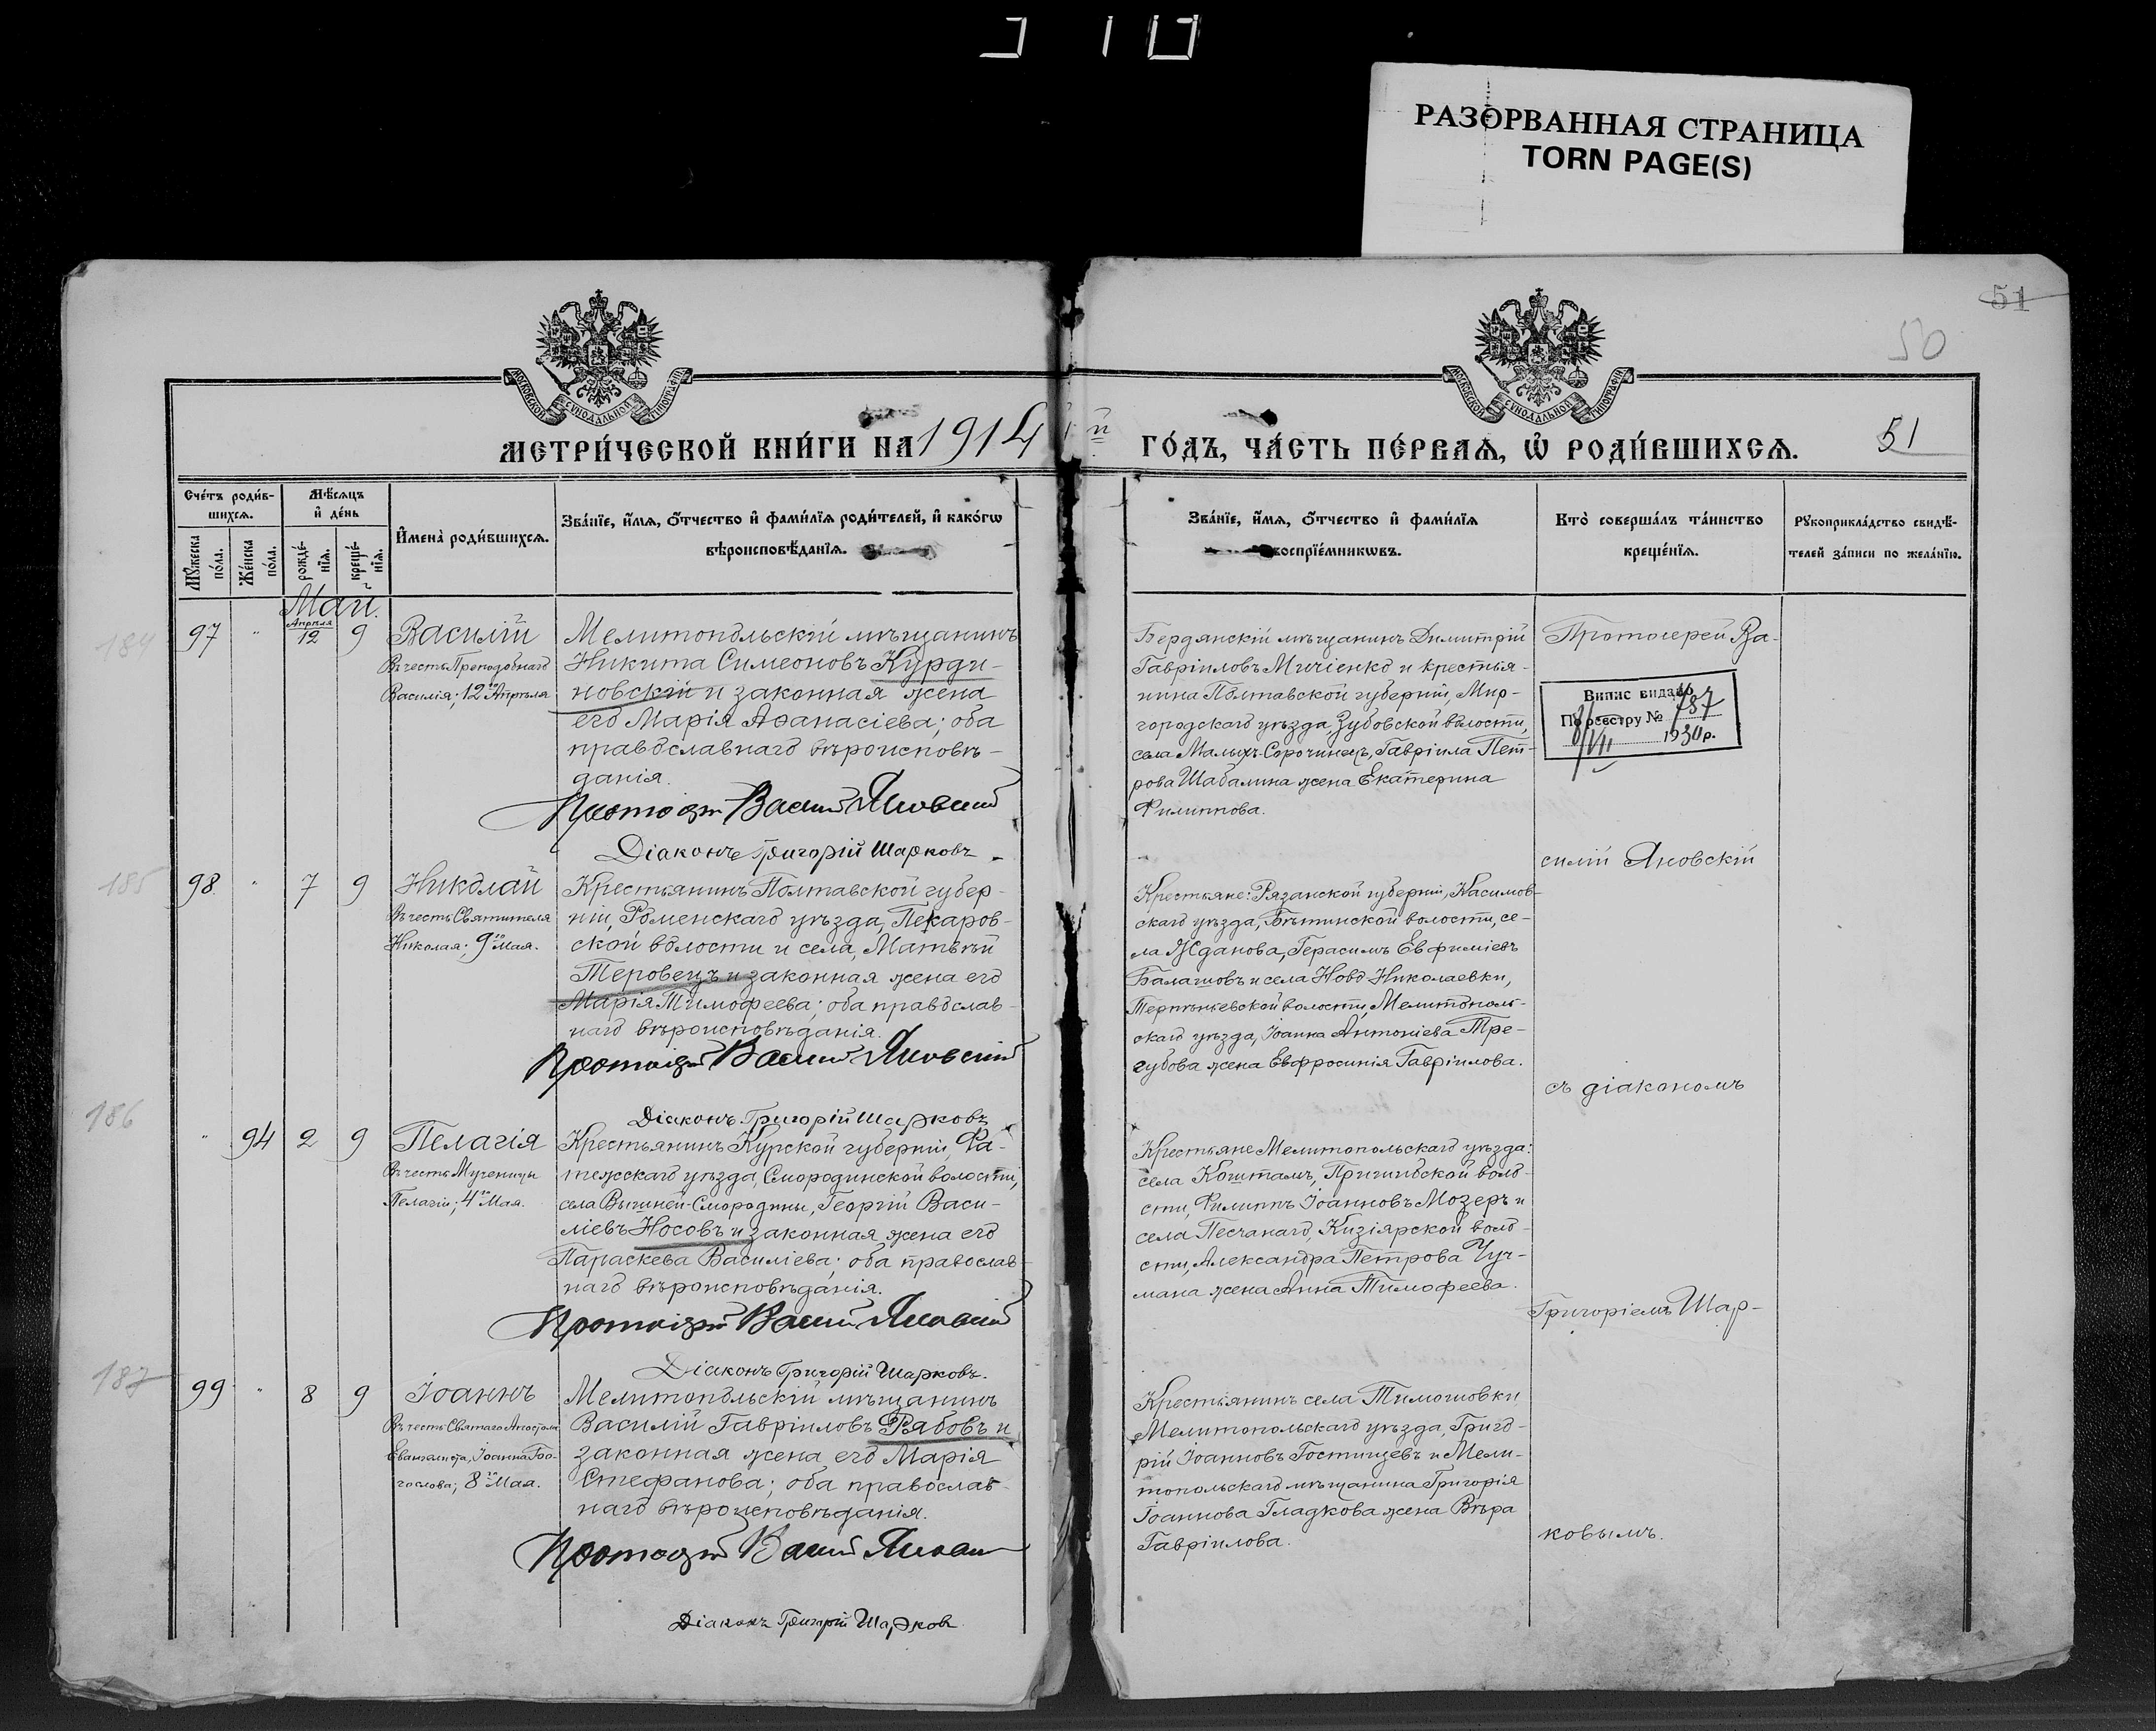 РАЗОРВАННАЯ СТРАНИЦА
TORN PAGE(S)
51
50
МОСКОВСКОЙ СѴНОДАЛЬНОЙ ТИПОГРАФІИ
МОСКОВСКОЙ СѴНОДАЛЬНОЙ ТИПОГРАФІИ
МЕТРИ́ЧЕСКОЙ КНИ́ГИ НА 1914 й ГО́ДЪ, ЧА́СТЬ ПЕ́РВАѦ, Ѡ҆ РОДИ́ВШИХСѦ.
51
Счéтъ роди́в-
шихсѧ.
Мꙋ́жеска по́ла.
Же́нска по́ла.
Мѣ́сѧцъ
и҆ де́нь
рожде́-нїѧ.
креще́-нїѧ.
И҆мена̀ роди́вшихсѧ.
Зва́нїе, и҆́мѧ, ѻ҆́тчество и҆ фами́лїѧ роди́телей, и҆ како́гѡ
вѣроисповѣ́данїѧ.
Зва́нїе, и҆́мѧ, ѻ҆́тчество и҆ фами́лїѧ
воспрїе́мникѡвъ.
Кто̀ соверша́лъ та́инство
креще́нїѧ.
Рꙋкоприкла́дство свидѣ́-
телей за́писи по жела́нїю.
Маи.
184
97 " Апрѣля 12 9
Василій
Въ честь Преподобнаго
Василія; 12го Апрѣля
Мелитопольскій мѣщанинъ
Никита Симеоновъ Курди-
новскій и законная жена
его Марія Аѳанасіева; оба
православнаго вѣроисповѣ-
данія.
Протоіер Василій Яновский
Діаконъ Григорій Шарковъ
Бердянскій мѣщанинъ Димитрій
Гавріиловъ Мичіенко и крестья-
нина Полтавской губерніи, Мир-
городскаго уѣзда, Зубовской волости,
села Малыхъ-Сорочинецъ, Гавріила Пет-
рова Шабалина жена Екатерина
Филиппова.
Протоіерей Ва-
Випис видано
По реєстру № 787
8/VII 1930 р.
силій Яновскій
185
98. " 7 9
Николай
Въ честь Святителя
Николая; 9го Мая.
Крестьянинъ Полтавской губер-
ніи, Роменскаго уѣзда, Пекаров-
ской волости и села, Матвѣй
Теровецъ и законная жена его
Марія Тимофеева; оба православ-
наго вѣроисповѣданія.
Протоіер Василій Яновский
Діаконъ Григорій Шарковъ
Крестьяне: Рязанской губерніи, Касимов-
скаго уѣзда, Бѣтинской волости, се-
ла Жданова, Герасимъ Евфиміевъ
Балашовъ и села Ново Николаевки,
Терпѣньевской волости, Мелитополь-
скаго уѣзда, Іоанна Антоніева Тре-
губова жена Евфросинія Гавріилова.
съ діакономъ
186
" 94 2 9
Пелагія
Въ честь Мученицы
Пелагіи; 4го Мая.
Крестьянинъ Курской губерніи, Фа-
тежскаго уѣзда, Смородинской волости,
села Вышней-Смородины, Георгій Васи-
ліевъ Носовъ и законная жена его
Параскева Василіева; оба православ-
наго вѣроисповѣданія.
Протоіер Василій Яновский
Діаконъ Григорій Шарковъ.
Крестьяне Мелитопольскаго уѣзда:
села Коштамъ, Пришибской воло-
сти, Филиппъ Іоанновъ Мозеръ и
села Песчанаго, Кизіярской воло-
сти, Александра Петрова Чуч-
мана жена Анна Тимофеева.
Григоріемъ Шар-
187
99 " 8 9
Іоаннъ
Въ честь Святаго Апостола
Евангелиста, Іоанна Бо-
гослова; 8го Мая.
Мелитопольскій мѣщанинъ
Василій Гавріиловъ Рябовъ и
законная жена его Марія
Стефанова; оба православ-
наго вѣроисповѣданія.
Протоіер Василій Яновск
Діаконъ Григорій Шарков
Крестьянинъ села Тимошовки
Мелитопольскаго уѣзда, Григо-
рій Іоанновъ Гостищевъ и Мели-
топольскаго мѣщанина Григорія
Іоаннова Гладкова жена Вѣра
Гавріилова.
ковымъ.